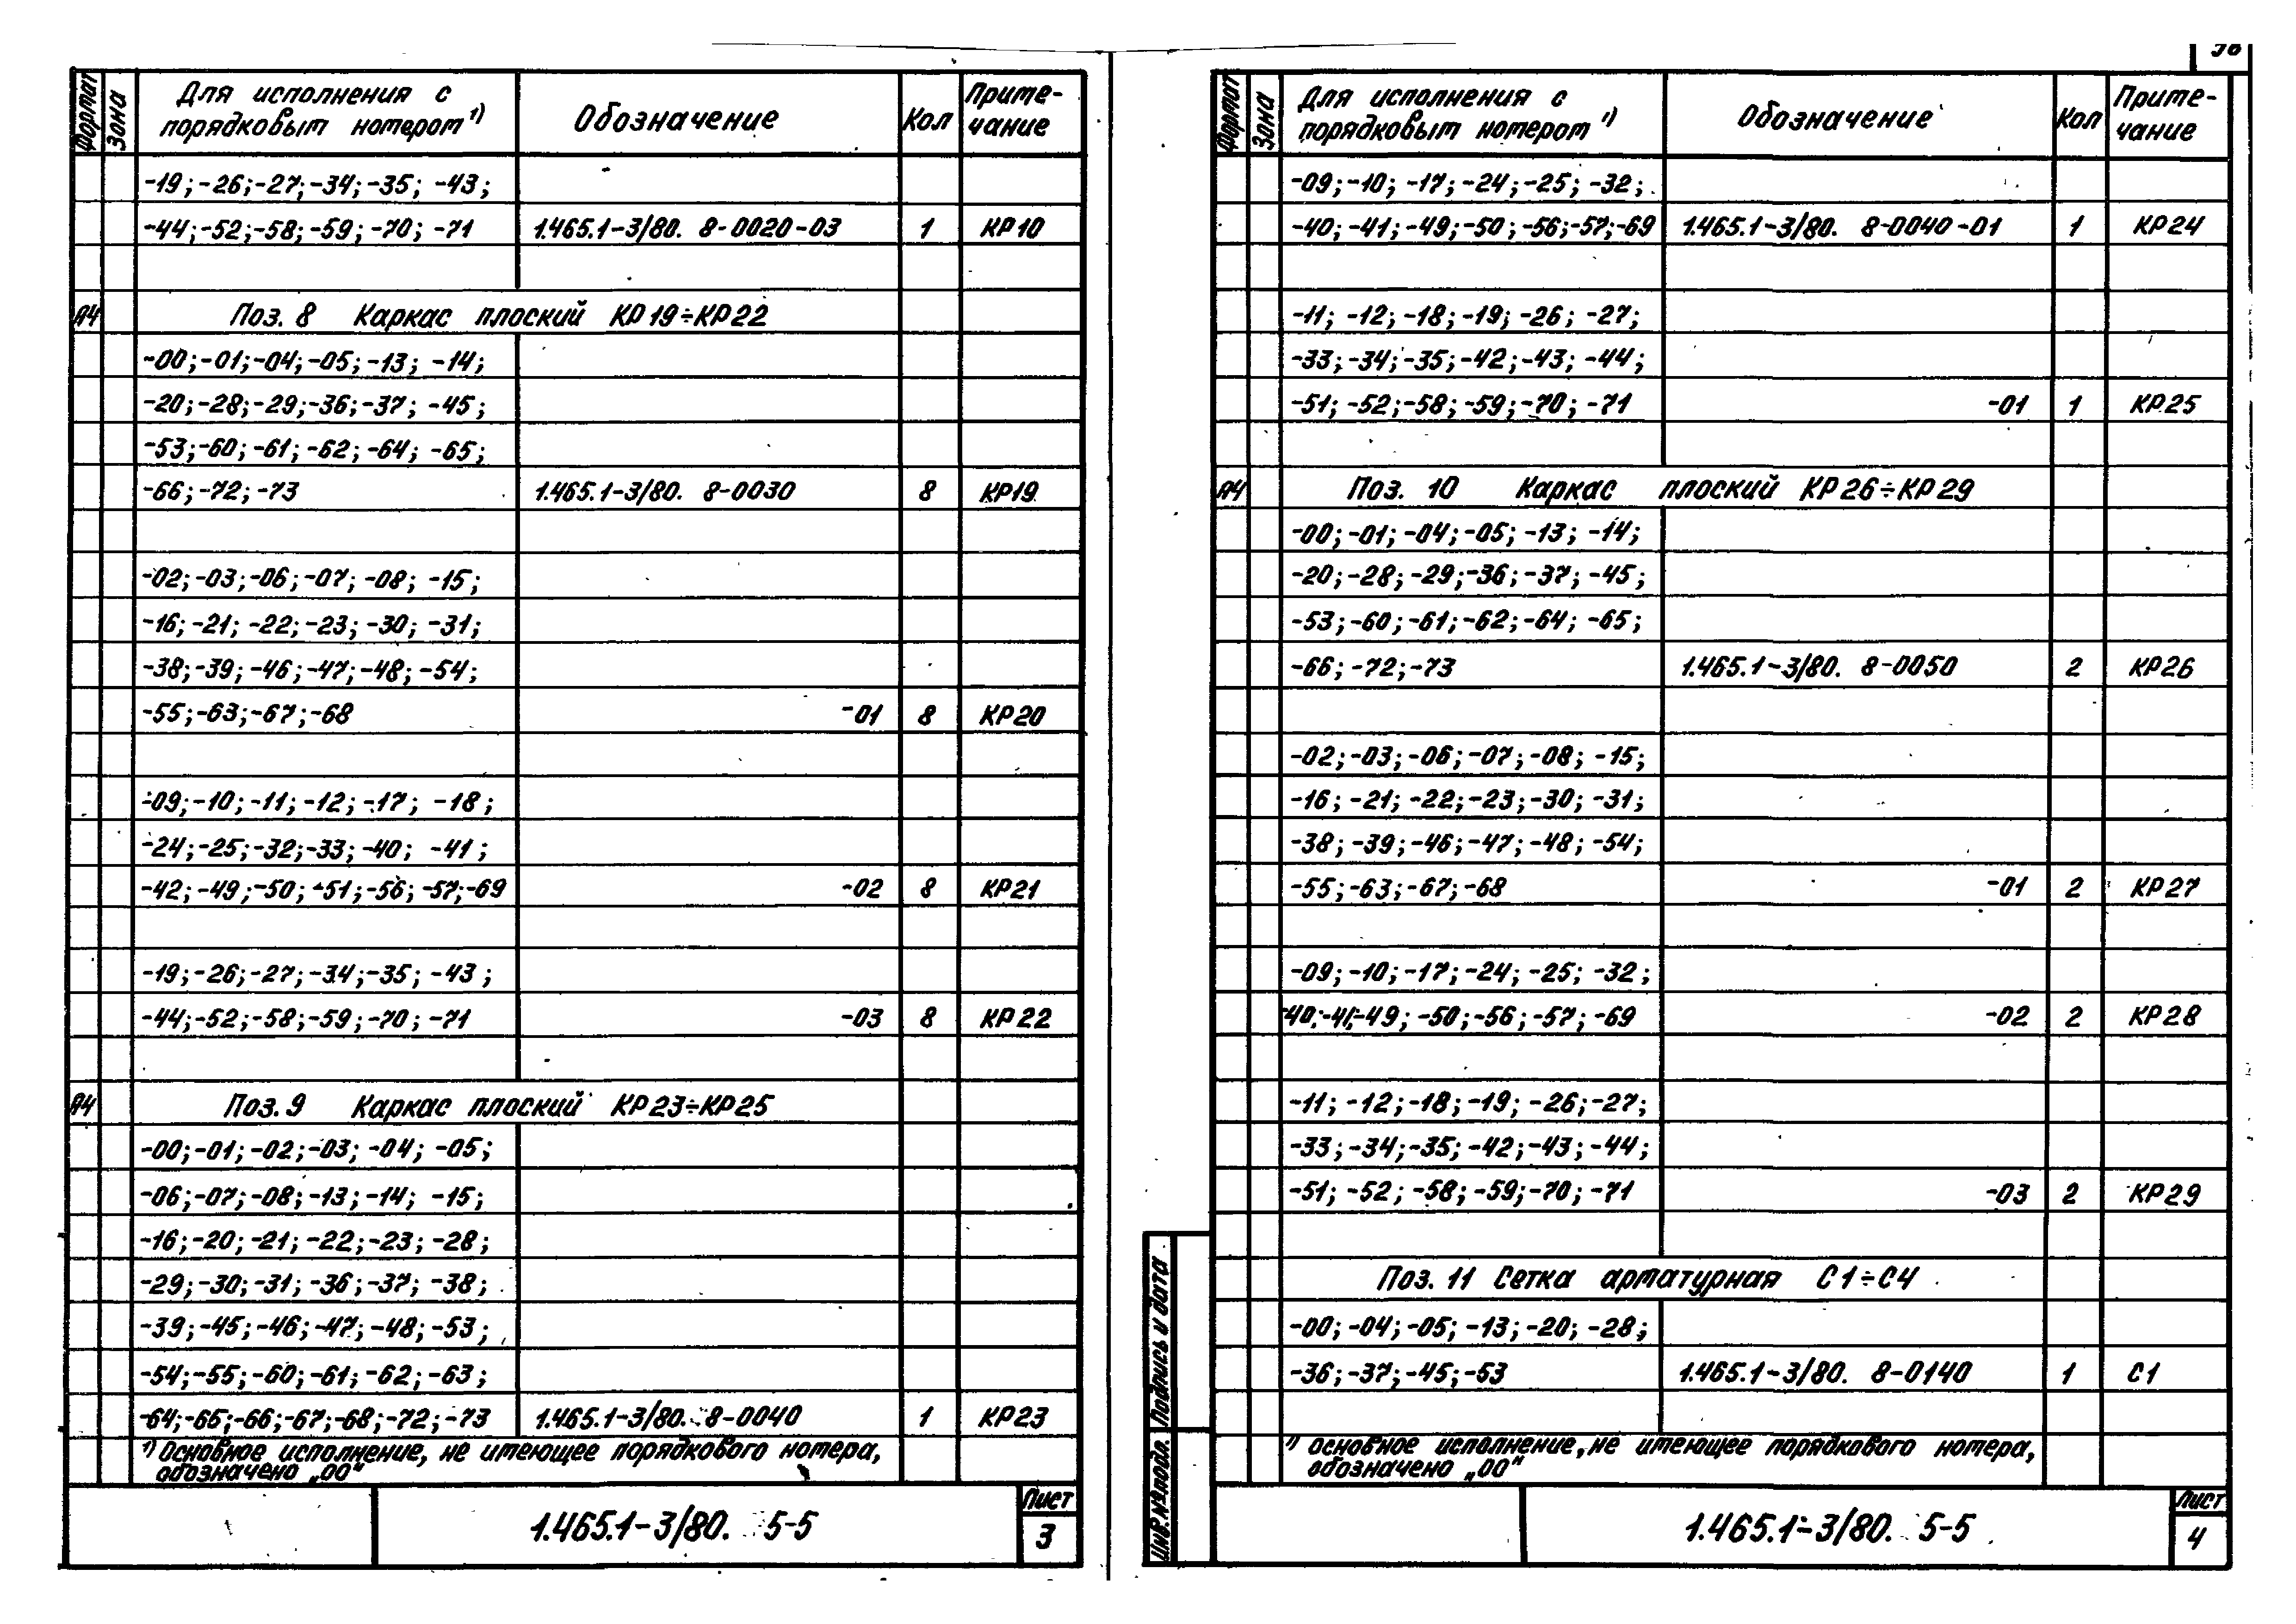 Формат
Зона
Для исполнения с
порядковым номером 1)
Обозначение
Кол
Приме-
чание
-19; -26; -27; -34; -35; -43;
-44; -52; -58; -59; -70; -71 1.465.1-3/80. 8-0020-03 1 КР10
А4 Поз. 8 Каркас плоский КР19÷КР22
-00; -01; -04; -05; -13; -14;
-20; -28; -29; -36; -37; -45;
-53; -60; -61; -62; -64; -65;
-66; -72; -73 1.465.1-3/80. 8-0030 8 КР19
-02; -03; -06; -07; -08; -15;
-16; -21; -22; -23; -30; -31;
-38; -39; -46; -47; -48; -54;
-55; -63; -67; -68 -01 8 КР20
-09; -10; -11; -12; -17; -18;
-24; -25; -32; -33; -40; -41;
-42; -49; -50; -51; -56; -57; -69 -02 8 КР21
-19; -26; -27; -34; -35; -43;
-44; -52; -58; -59; -70; -71 -03 8 КР22
А4 Поз. 9 Каркас плоский КР23÷КР25
-00; -01; -02; -03; -04; -05;
-06; -07; -08; -13; -14; -15;
-16; -20; -21; -22; -23; -28;
-29; -30; -31; -36; -37; -38;
-39; -45; -46; -47; -48; -53;
-54; -55; -60; -61; -62; -63;
-64; -65; -66; -67; -68; -72; -73 1.465.1-3/80. 8-0040 1 КР23
1) Основное исполнение, не имеющее порядкового номера,
обозначено „00"
1.465.1-3/80. 5-5
Лист
3
Формат
Зона
Для исполнения с
порядковым номером 1)
Обозначение
Кол
Приме-
чание
-09; -10; -17; -24; -25; -32;
-40; -41; -49; -50; -56; -57; -69 1.465.1-3/80. 8-0040-01 1 КР24
-11; -12; -18; -19; -26; -27;
-33; -34; -35; -42; -43; -44;
-51; -52; -58; -59; -70; -71 -01 1 КР25
А4 Поз. 10 Каркас плоский КР26÷КР29
-00; -01; -04; -05; -13; -14;
-20; -28; -29; -36; -37; -45;
-53; -60; -61; -62; -64; -65;
-66; -72; -73 1.465.1-3/80. 8-0050 2 КР26
-02; -03; -06; -07; -08; -15;
-16; -21; -22; -23; -30; -31;
-38; -39; -46; -47; -48; -54;
-55; -63; -67; -68 -01 2 КР27
-09; -10; -17; -24; -25; -32;
-40; -41; -49; -50; -56; -57; -69 -02 2 КР28
-11; -12; -18; -19; -26; -27;
-33; -34; -35; -42; -43; -44;
-51; -52; -58; -59; -70; -71 -03 2 КР29
Поз. 11 Сетка арматурная С1÷С4
-00; -04; -05; -13; -20; -28;
-36; -37; -45; -53 1.465.1-3/80. 8-0140 1 С1
1) Основное исполнение, не имеющее порядкового номера,
обозначено „00"
Подпись и дата
Инв. № подл.
1.465.1-3/80. 5-5
Лист
4